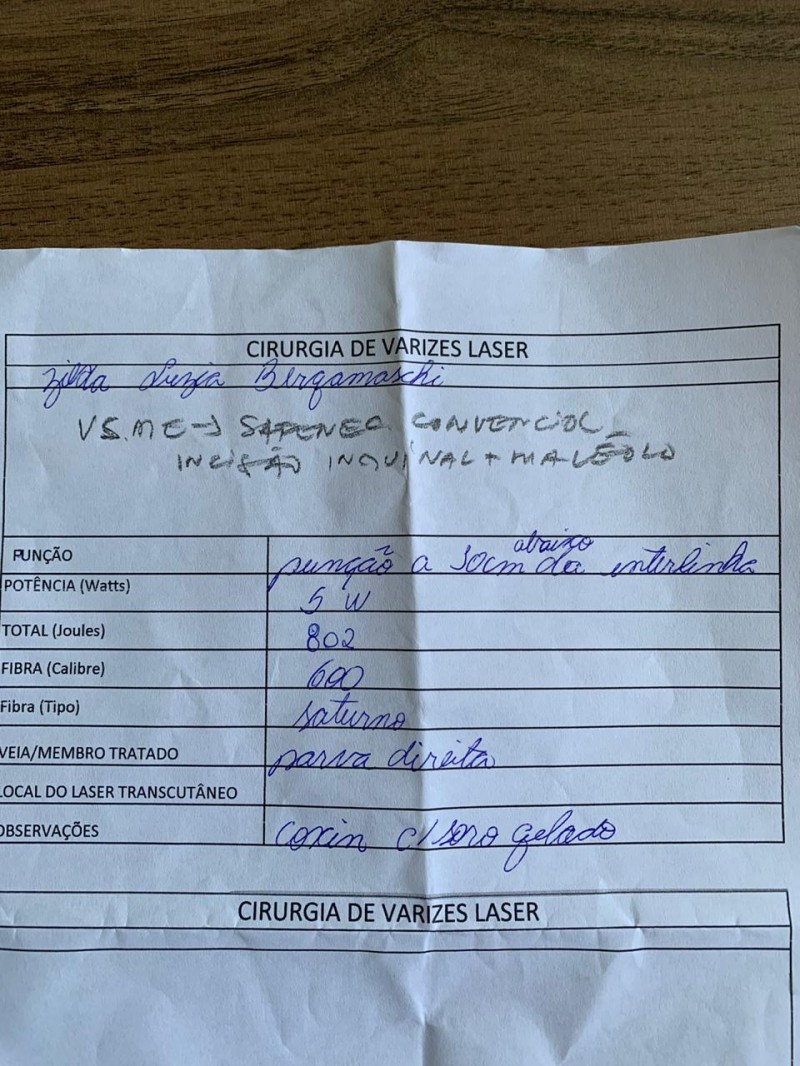 CIRURGIA DE VARIZES LASER
Zilda Luzia Bergamaschi
VS.ME→ SAFENEC CONVENCIOL_
INCISÃO INQUINAL + MALÉOLO
PUNÇÃO punção a 30cm abaixo da interlinha
POTÊNCIA (Watts) 5 W
TOTAL (Joules) 802
FIBRA (Calibre) 600
Fibra (Tipo) saturno
VEIA/MEMBRO TRATADO parva direita
LOCAL DO LASER TRANSCUTÂNEO
OBSERVAÇÕES coxin c/ soro gelado
CIRURGIA DE VARIZES LASER